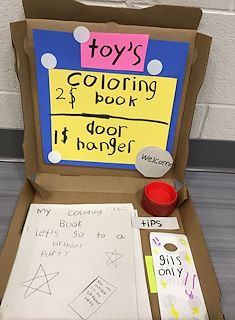 toy's
coloring
2$ book
1$ door
hanger
Welcome
tips
My coloring
Book
Let's go to a
birthday
Party
gils
only